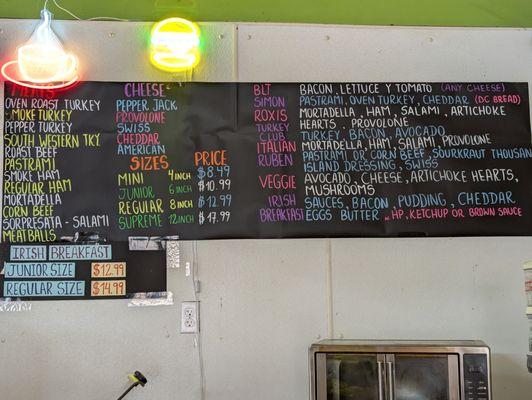 MEATS
OVEN ROAST TURKEY
SMOKE TURKEY
PEPPER TURKEY
SOUTH WESTERN TKY
ROAST BEEF
PASTRAMI
SMOKE HAM
REGULAR HAM
MORTADELLA
CORN BEEF
SORPRESATA - SALAMI
MEATBALLS
CHEESE
PEPPER JACK
PROVOLONE
SWISS
CHEDDAR
AMERICAN
SIZES PRICE
MINI 4 INCH $8.49
JUNIOR 6 INCH $10.99
REGULAR 8 INCH $12.99
SUPREME 12 INCH $17.99
BLT BACON, LETTUCE Y TOMATO (ANY CHEESE)
SIMON PASTRAMI, OVEN TURKEY, CHEDDAR (DC BREAD)
ROXIS MORTADELLA, HAM, SALAMI, ARTICHOKE
HEARTS, PROVOLONE
TURKEY CLUB TURKEY, BACON, AVOCADO
ITALIAN MORTADELLA, HAM, SALAMI, PROVOLONE
RUBEN PASTRAMI OR CORN BEEF, SOURKRAUT THOUSAN
ISLAND DRESSING, SWISS
VEGGIE AVOCADO, CHEESE, ARTICHOKE HEARTS,
MUSHROOMS
IRISH SAUCES, BACON, PUDDING, CHEDDAR
BREAKFAST EGGS BUTTER w/ HP, KETCHUP OR BROWN SAUCE
IRISH BREAKFAST
JUNIOR SIZE $12.99
REGULAR SIZE $14.99